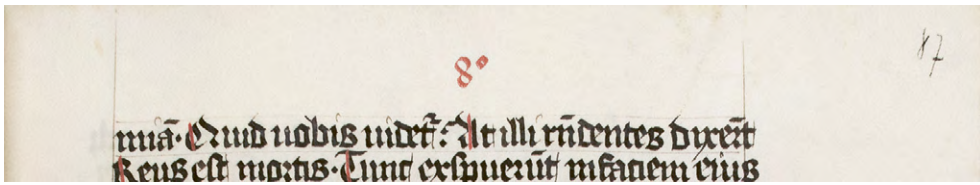 8º
87
miā. Quid uobis uidet᷑: At illi rn̄dentes dixer̄t
Reus est mortis. Tunc exspuerūt infaciem eius